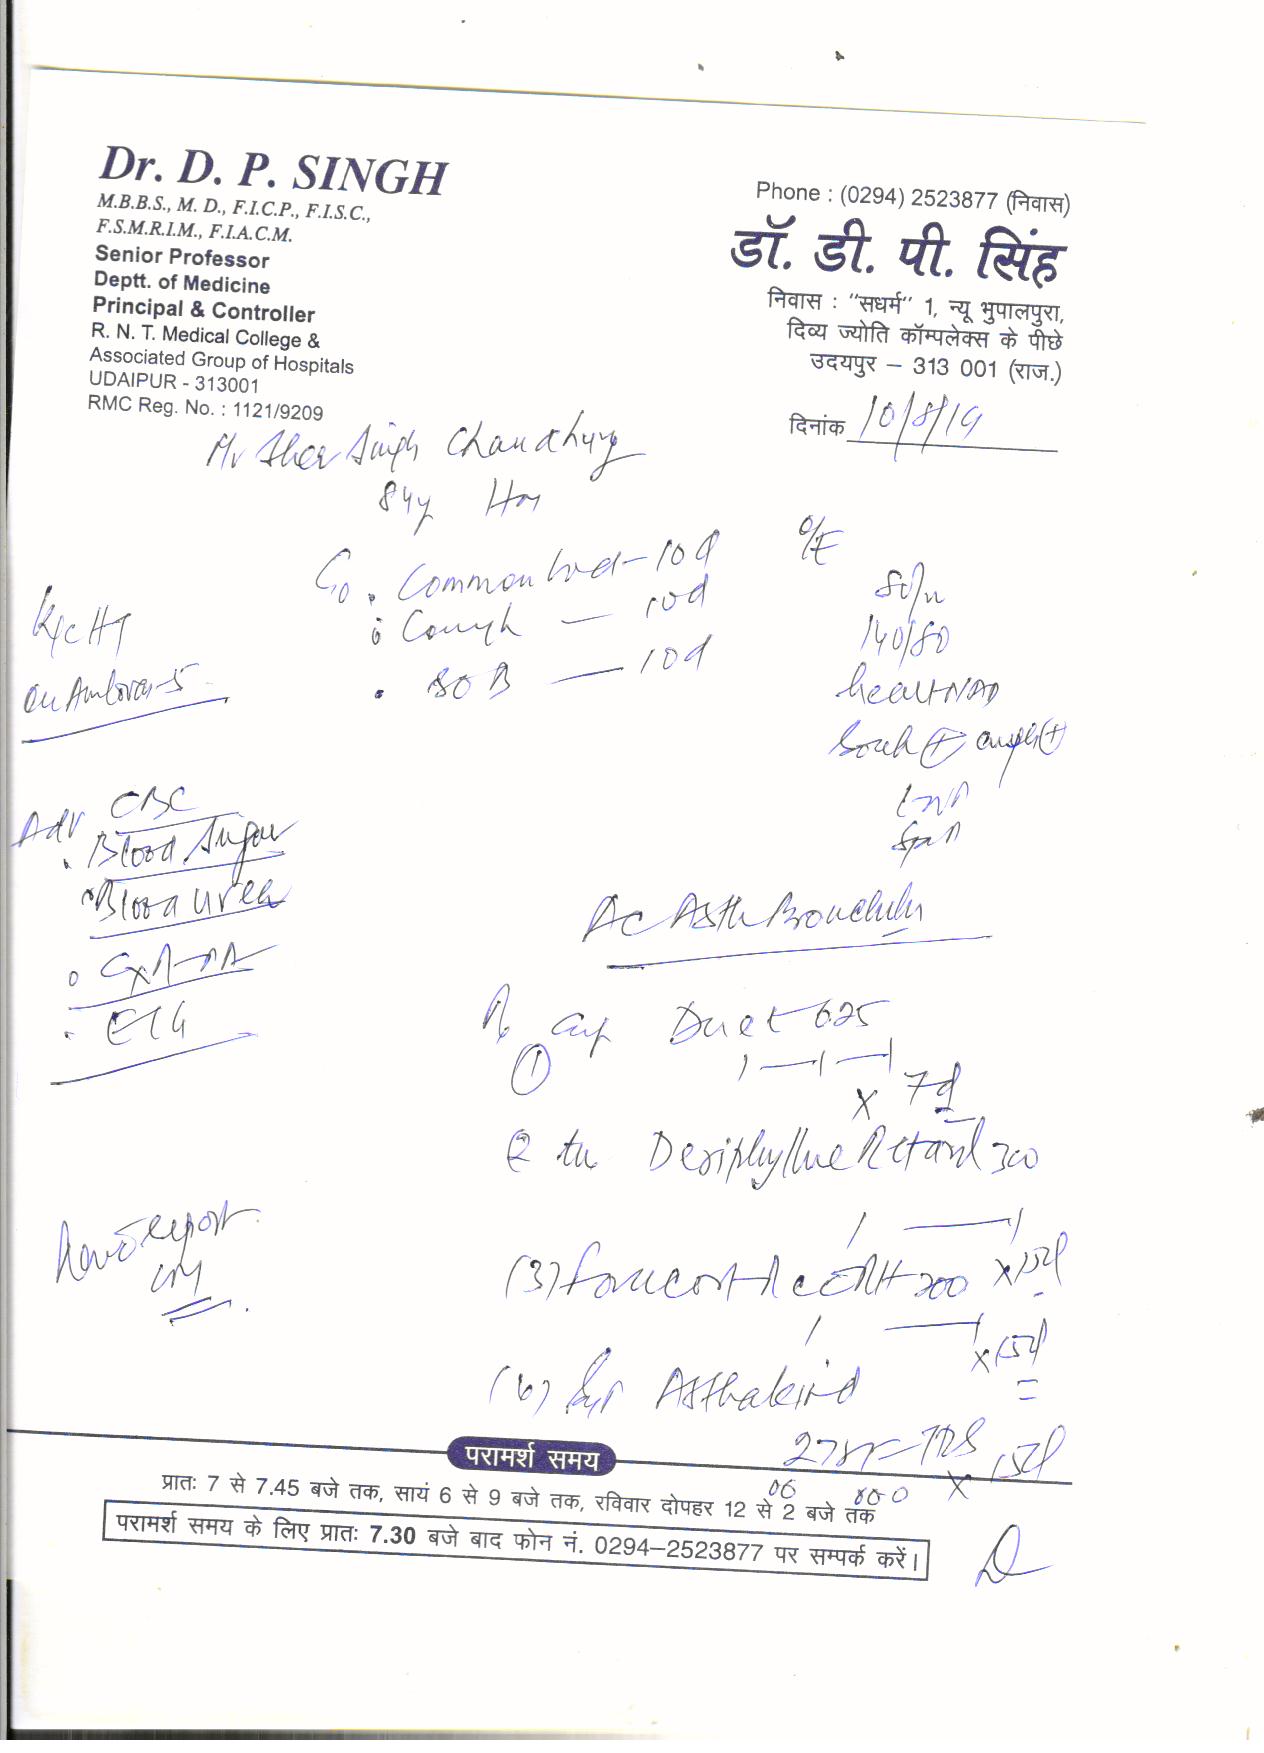 Dr. D. P. SINGH
M.B.B.S., M. D., F.I.C.P., F.I.S.C.,
F.S.M.R.I.M., F.I.A.C.M.
Senior Professor
Deptt. of Medicine
Principal & Controller
R. N. T. Medical College &
Associated Group of Hospitals
UDAIPUR - 313001
RMC Reg. No. : 1121/9209
Phone : (0294) 2523877 (निवास)
डॉ. डी. पी. सिंह
निवास : "सधर्म" 1, न्यू भुपालपुरा,
दिव्य ज्योति कॉम्पलेक्स के पीछे
उदयपुर – 313 001 (राज.)
दिनांक 10/8/19
Mr Sher Singh Chaudhury
84y
C/o . Common Cold - 10d
. Cough — 10d
. SOB — 10d
K/c HT
on Amlovas-5
O/E
80/m
140/80
heart NAD
Adv CBC
. Blood Sugar
. Blood Urea
. CxR-PA
. ECG
Ac Asth Bronchitis
Rx cap Duet 625
① 1 — 1 — 1
x 7d
2 tab Deriphylline Retard 300
1 — 1
x 15d
(3) Foracort Rcap 200
1 — 1
x 15d
(4) Syp Asthakind
2 TSF — TDS
x 15d
Rev c report
परामर्श समय
प्रातः 7 से 7.45 बजे तक, सायं 6 से 9 बजे तक, रविवार दोपहर 12 से 2 बजे तक
परामर्श समय के लिए प्रातः 7.30 बजे बाद फोन नं. 0294–2523877 पर सम्पर्क करें।